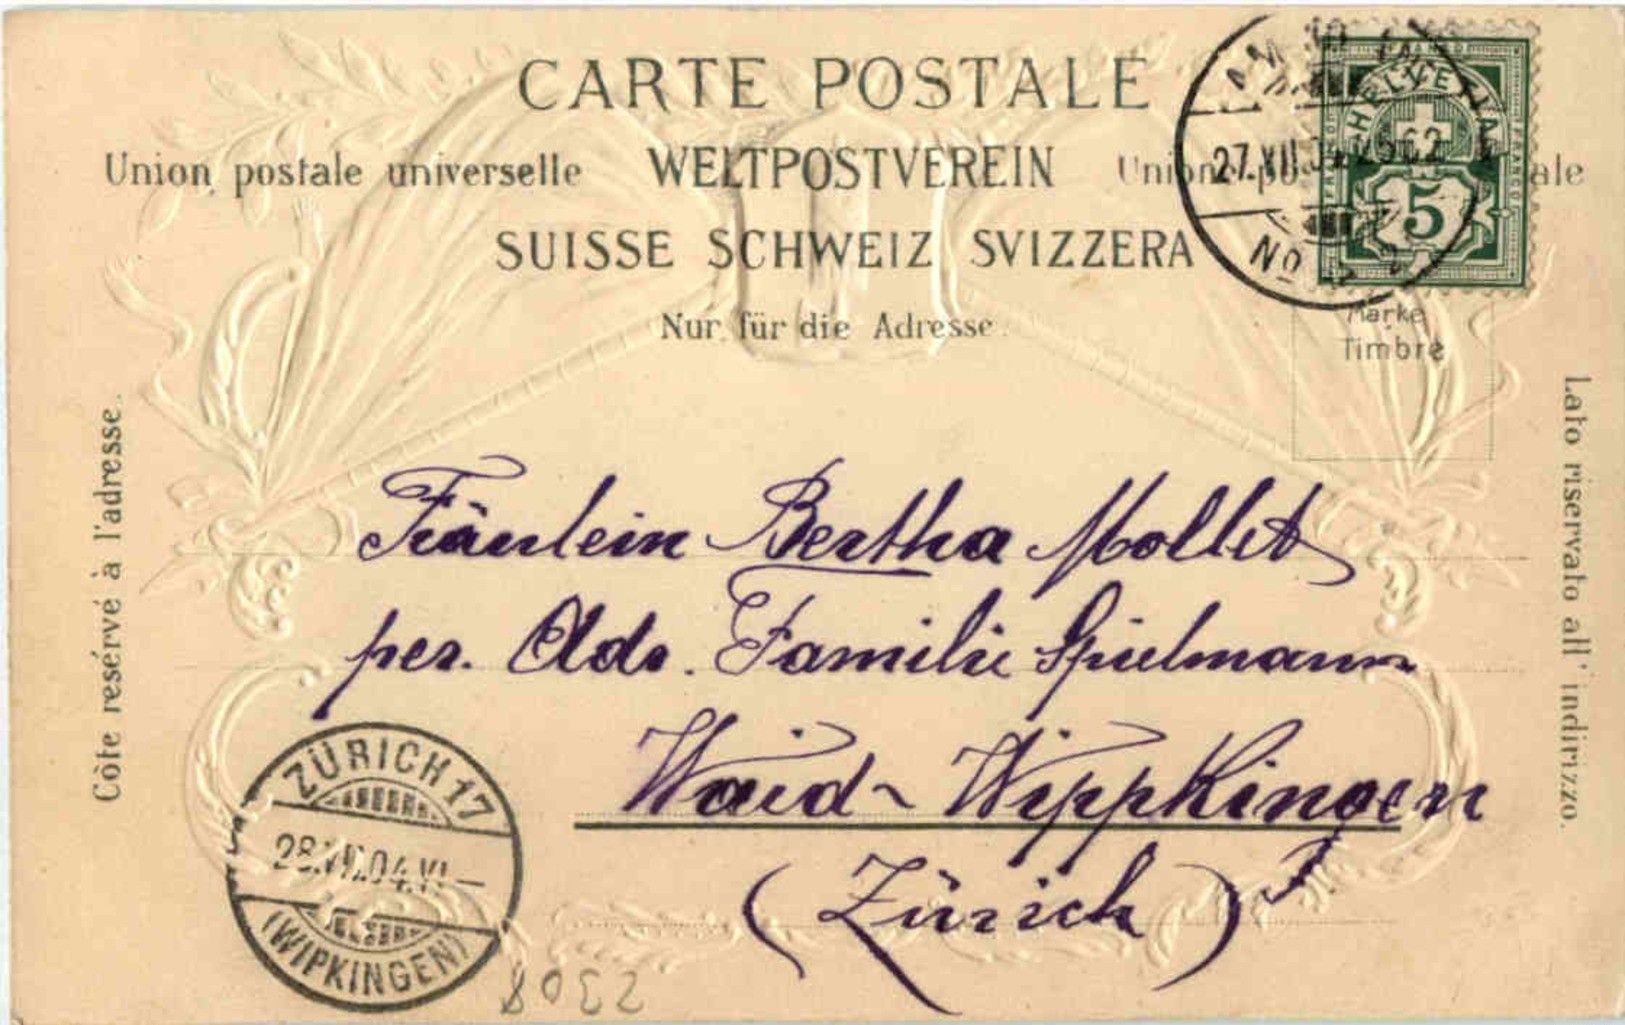 CARTE POSTALE
Union postale universelle WELTPOSTVEREIN Unione po ale
SUISSE SCHWEIZ SVIZZERA
Nur für die Adresse.
AMB
27.XII.04
No 2
HELVETIA
FRANCO
5
Marke
Timbre
Côte resérvé à l'adresse.
Lato riservato all' indirizzo.
Fräulein Bertha Mollet
per. Adr. Familie Spielmann
Waid-Wippkingen
(Zürich)
ZÜRICH 17
28.XII.04.VI-
(WIPKINGEN)
2308